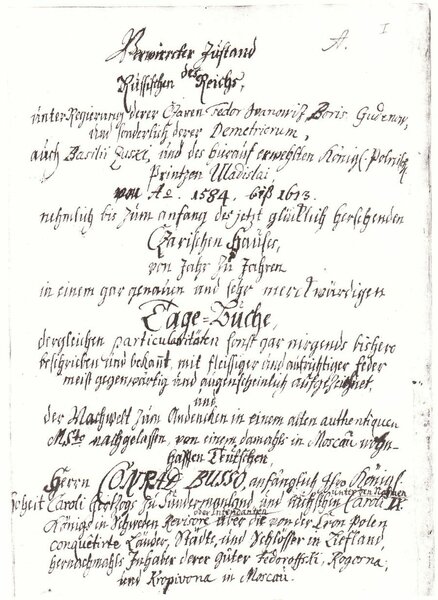 A. 1
Verwirrter Zustand
des
Russischen Reichs,
unter Regierung derer Czaren Fedor Ivanowiz Boris Gudenow,
und sonderlich derer Demetriorum,
auch Basilii Zuski, und des hierauf erwehlten Königl. Polnischen
Printzen Uladislai
von Ao. 1584. biß 1613.
nehmlich bis zum anfang des jetzt glücklich herschenden
Czarischen Hauses,
von Jahr zu Jahren
in einem gar genauen und sehr merckwürdigen
Tage-Buche,
dergleichen particularitäten sonst gar nirgends bishero
beschrieben und bekant, mit fleissiger und aufrichtiger feder
meist gegenwärtig und augenscheinlich aufgezeichnet,
und
der Nachwelt zum Andencken in einem alten authentiquen
MSto nachgelassen, von einem damahls in Moscau wohn-
hafften Teutschen,
Herrn CONRAD BUSSO, anfänglich Ihro Königl.
Caroli Hertzogs zu Südermanland, und nachgehends unter den Nahmen Caroli IX.
Königs in Schweden Revisore oder Intendanten über die von der Cron Polen
conquetirte Länder, Städte, und Schlösser in Liefland,
hernachmahls Inhaber derer Güter Fedoroffski, Rogorna,
und Kropivona in Moscau.